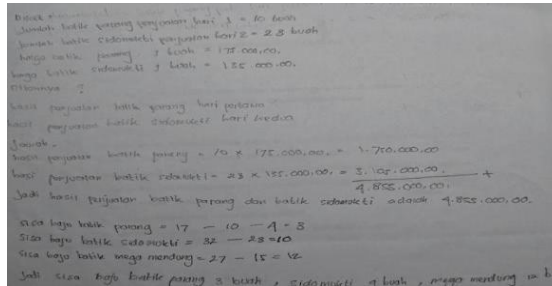 Jumlah batik parang penjualan hari 1 = 10 buah
Jumlah batik sidomukti penjualan hari 2 = 23 buah
harga batik parang 1 buah = 175.000,00.
harga batik sidomukti 1 buah = 135.000.00.
Ditanya ?
hasil penjualan batik parang hari pertama
hasil penjualan batik sidomukti hari kedua
Jawab.
hasil penjualan batik parang = 10 x 175.000,00. = 1.750.000,00
hasil penjualan batik sidomukti = 23 x 135.000.00. = 3.105.000,00. +
4.855.000,00.
Jadi hasil penjualan batik parang dan batik sidomukti adalah 4.855.000,00.
sisa baju batik parang = 17 - 10 - 4 = 3
sisa baju batik sidomukti = 32 - 23 = 10
sisa baju batik mega mendong = 27 - 15 = 12
Jadi sisa baju batik parang 3 buah, sidomukti 9 buah, mega mendong 12 b